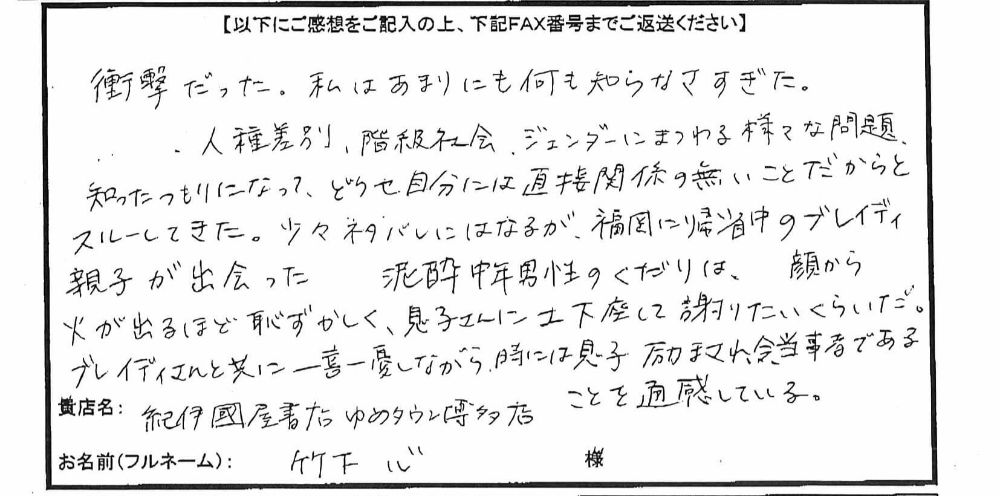 【以下にご感想をご記入の上、下記FAX番号までご返送ください】
衝撃だった。私はあまりにも何も知らなさすぎた。
人種差別、階級社会、ジェンダーにまつわる様々な問題、
知ったつもりになって、どうせ自分には直接関係の無いことだからと
スルーしてきた。少々ネタバレにはなるが、福岡に帰省中のブレイディ
親子が出会った 泥酔中年男性のくだりは、 顔から
火が出るほど恥ずかしく、息子さんに土下座して謝りたいくらいだ。
ブレイディさんと共に一喜一憂しながら、時には息子 励まされ、当事者である
ことを痛感している。
貴店名: 紀伊國屋書店 ゆめタウン博多店
お名前(フルネーム): 竹下 様